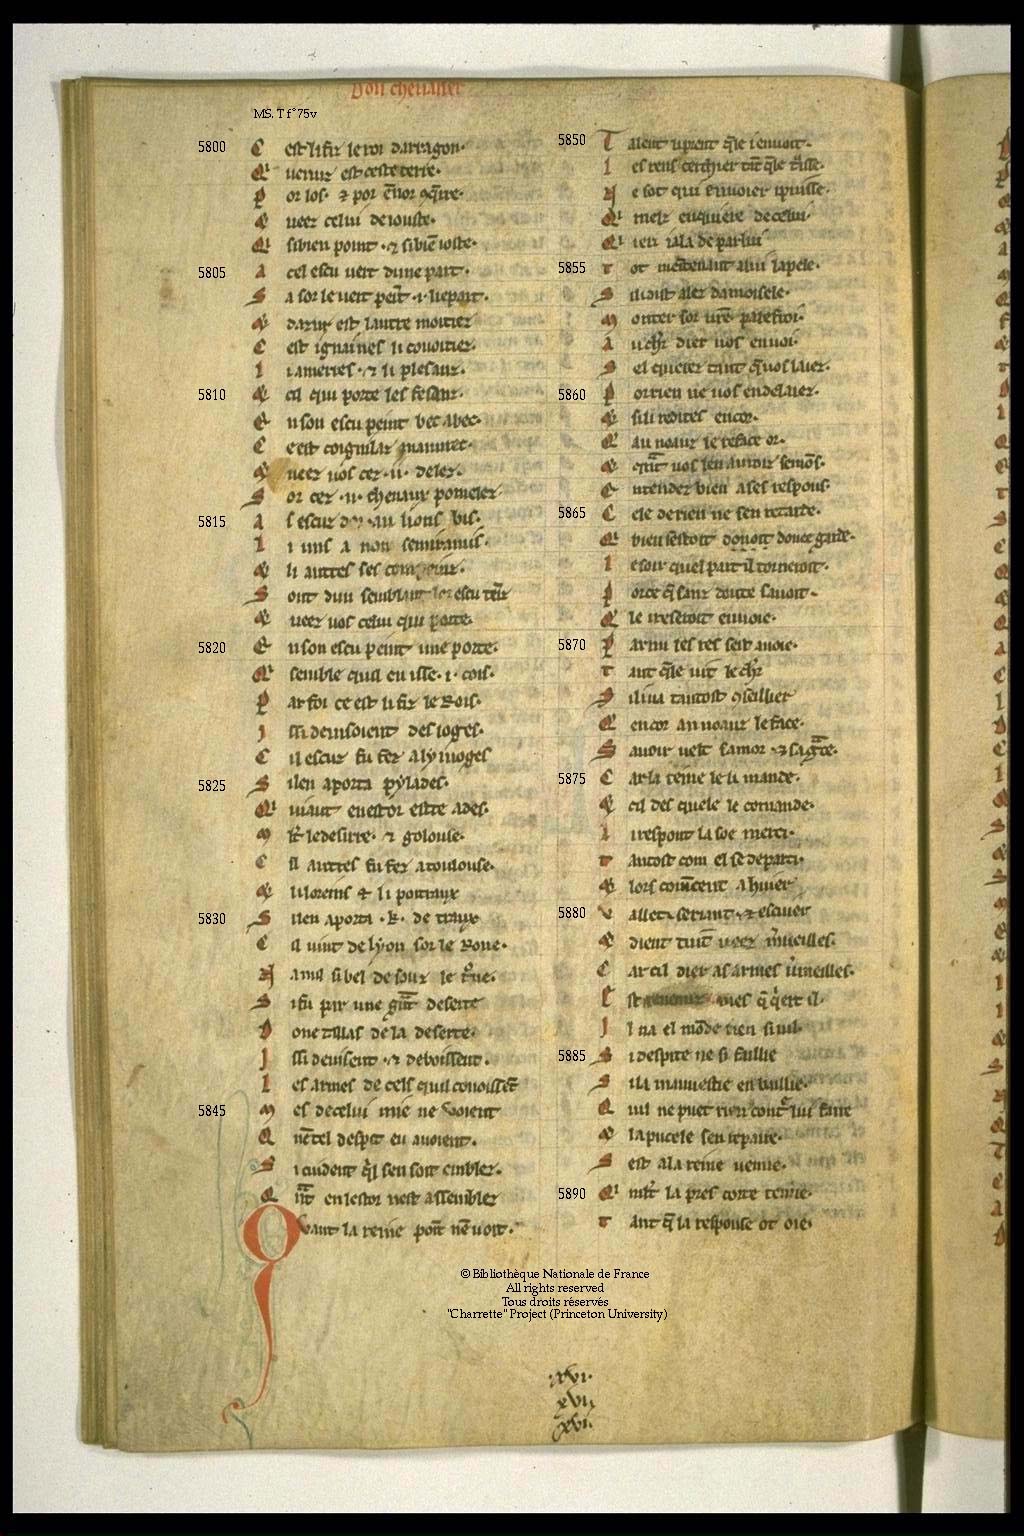 Don cheualier
MS. T f° 75v
5800
C est li fiz le roi darragon.
Q' venuz est ceste terre.
P or los. ⁊ por ēnor ꝯq̄rre.
⁊ veez celui de iouste.
Q' si bien point .⁊ si biē ioste.
5805
A cel escu vert dune part.
S a sor le vert peīt .i. liepart.
⁊ dazur est lautre moitiez
C est ignaures li couoitiez.
L i amerres .⁊ li plesanz.
5810
⁊ cil qui porte les fesanz.
E n son escu peint bec a bec.
C e est coiguillaz
⁊ veez uos cez .ii. delez.
S or cez .ii. cheuaux pomelez
5815
A s escuz lions bis.
L i uns a non semiramis.
⁊ li autres ses
S ont dun semblant lor escu teīt
⁊ veez uos celui qui porte.
5820
E n son escu peint une porte.
Q' semble quil en isse .i. cois.
P ar foi ce est li fiz le Rois.
I ssi deuisoient des loges.
C il escuz fu fez a lymoges
5825
S i len aporta pylades.
Q' viaut en estor estre ades.
M lt le desirre. ⁊ golouse.
C il autres fu fez a toulouse.
⁊ li lorens ⁊ li poitraux
5830
S i len aporta .k. de traux
C il vint de lyon sor le Rone.
N a nul si bel desouz le t'ne.
S i fu par une gn̄t deserte
D one de la deserte.
I ssi deuisent .⁊ deboissent.
L es armes de cels quil conoissēt
5845
M es de celui mie ne voient
Q nētel despit en auoient.
S i cuident q̄l sen soit emblez.
Q n̄t en lestor nest assemblez
Q vant la reine point nē voit.
5850
T alent li prent q̄le i enuoit.
L es rens cerchier tāt q̄le truisse.
N e set qui enuoier i puisse.
Q' melz enquiere de celui.
Q' ier i ala de par lui
5855
T ot mētenant a lui lapele.
S i li dist alez damoisele.
M onter sor vr̄e palefroi.
A u ch'r dier uos enuoi.
S el querez tant q̄ uos laiez.
5860
P or rien ne uos en delaiez.
⁊ si li redites encor.
Q' au noauz le reface or.
⁊ qn̄t uos len auroiz semōs.
E ntendez bien a ses respons.
5865
C ele de rien ne sen retarde.
Q' bien sestoit donoit donce garde.
L e soir quel part il torneroit.
P orce q̄ sanz doute sauoit.
Q' le i reseroit enuoie.
5870
P armi les res sest auoie.
T ant q̄le vit le ch'r
S i li va tantost ꝯseillier
Q encor au noauz le face.
S auoir velt samor ⁊ sa grāce.
5875
C ar la reine le li mande.
⁊ cil des quele le comande.
L i respont la soe merci.
T antost com el se departi.
⁊ lors comēcent a huier
5880
V allet. seriant .⁊ escuier
⁊ dient tuit veez m'ueilles.
C ar cil diez as armes v'meilles.
E st mes q̄ q'ert il.
I l na el mōde rien si vil.
5885
S i despite ne si faillie
S i la mauuestie en baillie.
Q uil ne puet rien cont' lui faire
⁊ la pucele sen repaire.
S est a la reine venue.
5890
Q' mlt la pres corte tenue.
T ant q̄ la response ot oie.
©Bibliothèque Nationale de France
All rights reserved
Tous droits réservés
"Charrette" Project (Princeton University)
.xvi.
xvii
xvi.